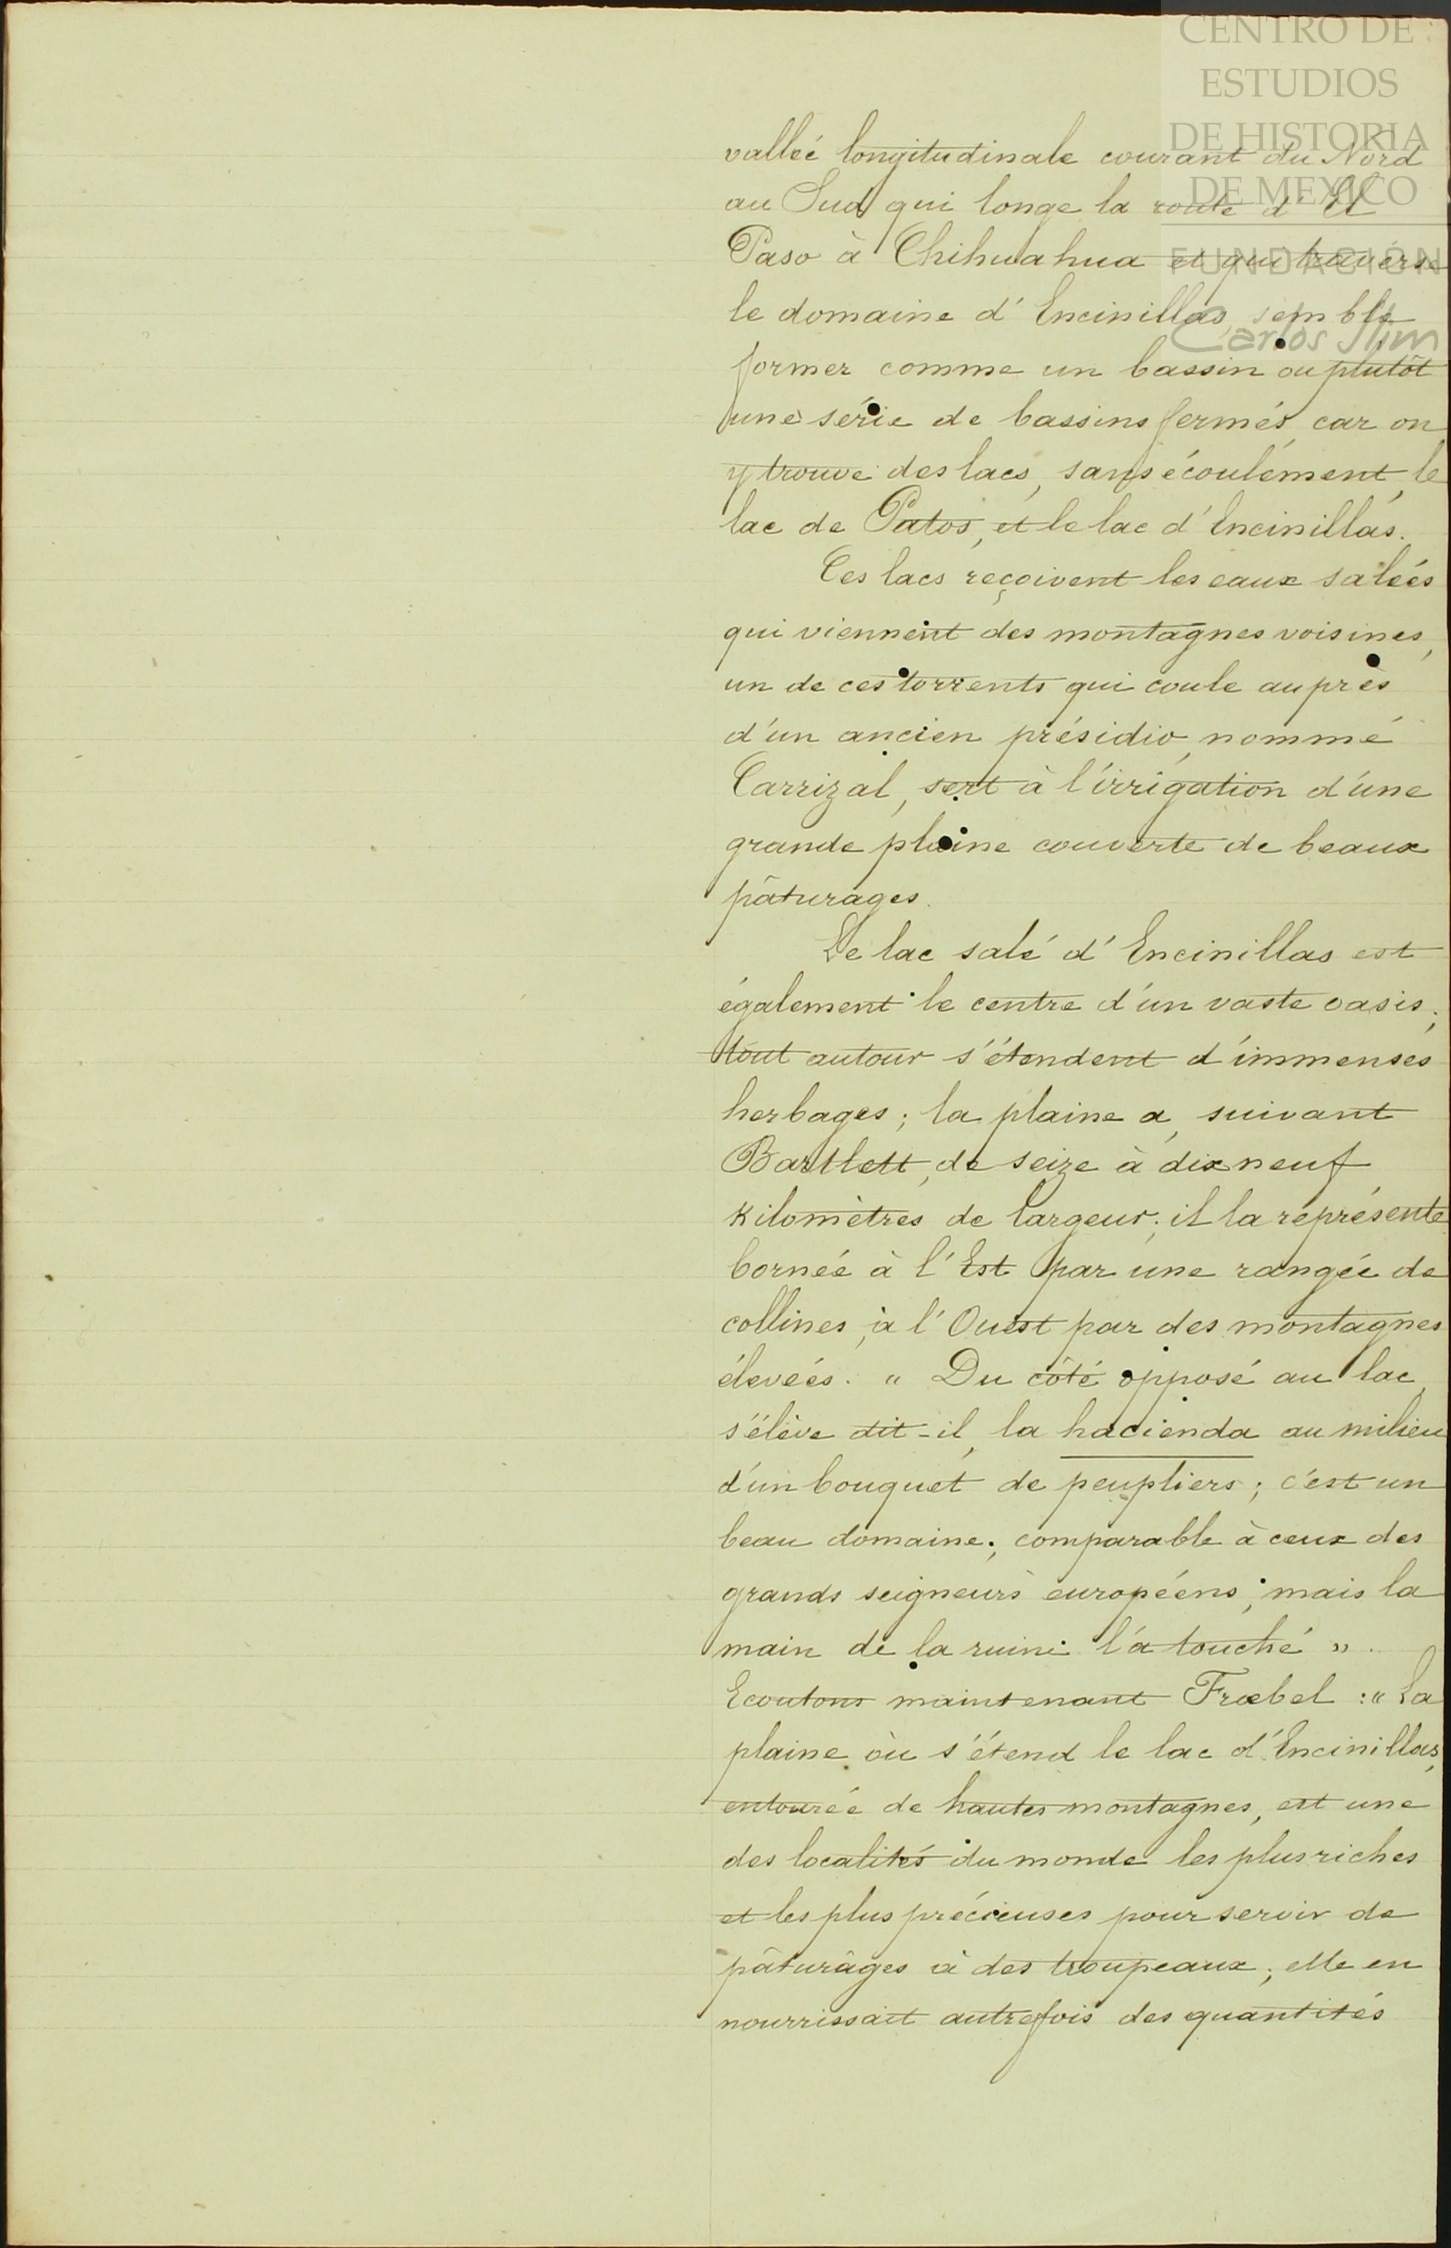 CENTRO DE
ESTUDIOS
DE HISTORIA
DE MEXICO
FUNDACIÓN
Carlos Slim
valleé longitudinale courant du Nord
au Sud qui longe la route d'El
Paso à Chihuahua et qui traverse
le domaine d'Encinillas, semble
former comme un bassin ou plutôt
une série de bassins fermés, car on
y trouve des lacs, sans écoulément, le
lac de Patos, et le lac d'Encinillas.
Ces lacs reçoivent les eaux saleés
qui viennent des montagnes voisines,
un de ces torrents qui coule auprès
d'un ancien présidio, nommé
Carrizal, sert à l'irrigation d'une
grande plaine couverte de beaux
pâturages.
Le lac salé d'Encinillas est
également le centre d'un vaste oasis;
tout autour s'étendent d'immenses
herbages; la plaine a, suivant
Bartlett, de seize à dix neuf
kilomètres de largeur; il la représente
borneé à l'Est par une rangée de
collines, à l'Ouest par des montagnes
éleveés. " Du côté opposé au lac,
s'élève dit-il, la hacienda au milieu
d'un bouquet de peupliers; c'est un
beau domaine, comparable à ceux des
grands seigneurs européens; mais la
main de la ruine l'a touché ".
Ecoutons maintenant Frœbel : " La
plaine où s'étend le lac d'Encinillas,
entourée de hautes montagnes, est une
des localités du monde les plus riches
et les plus précieuses pour servir de
pâturâges à des troupeaux; elle en
nourrissait autrefois des quantités